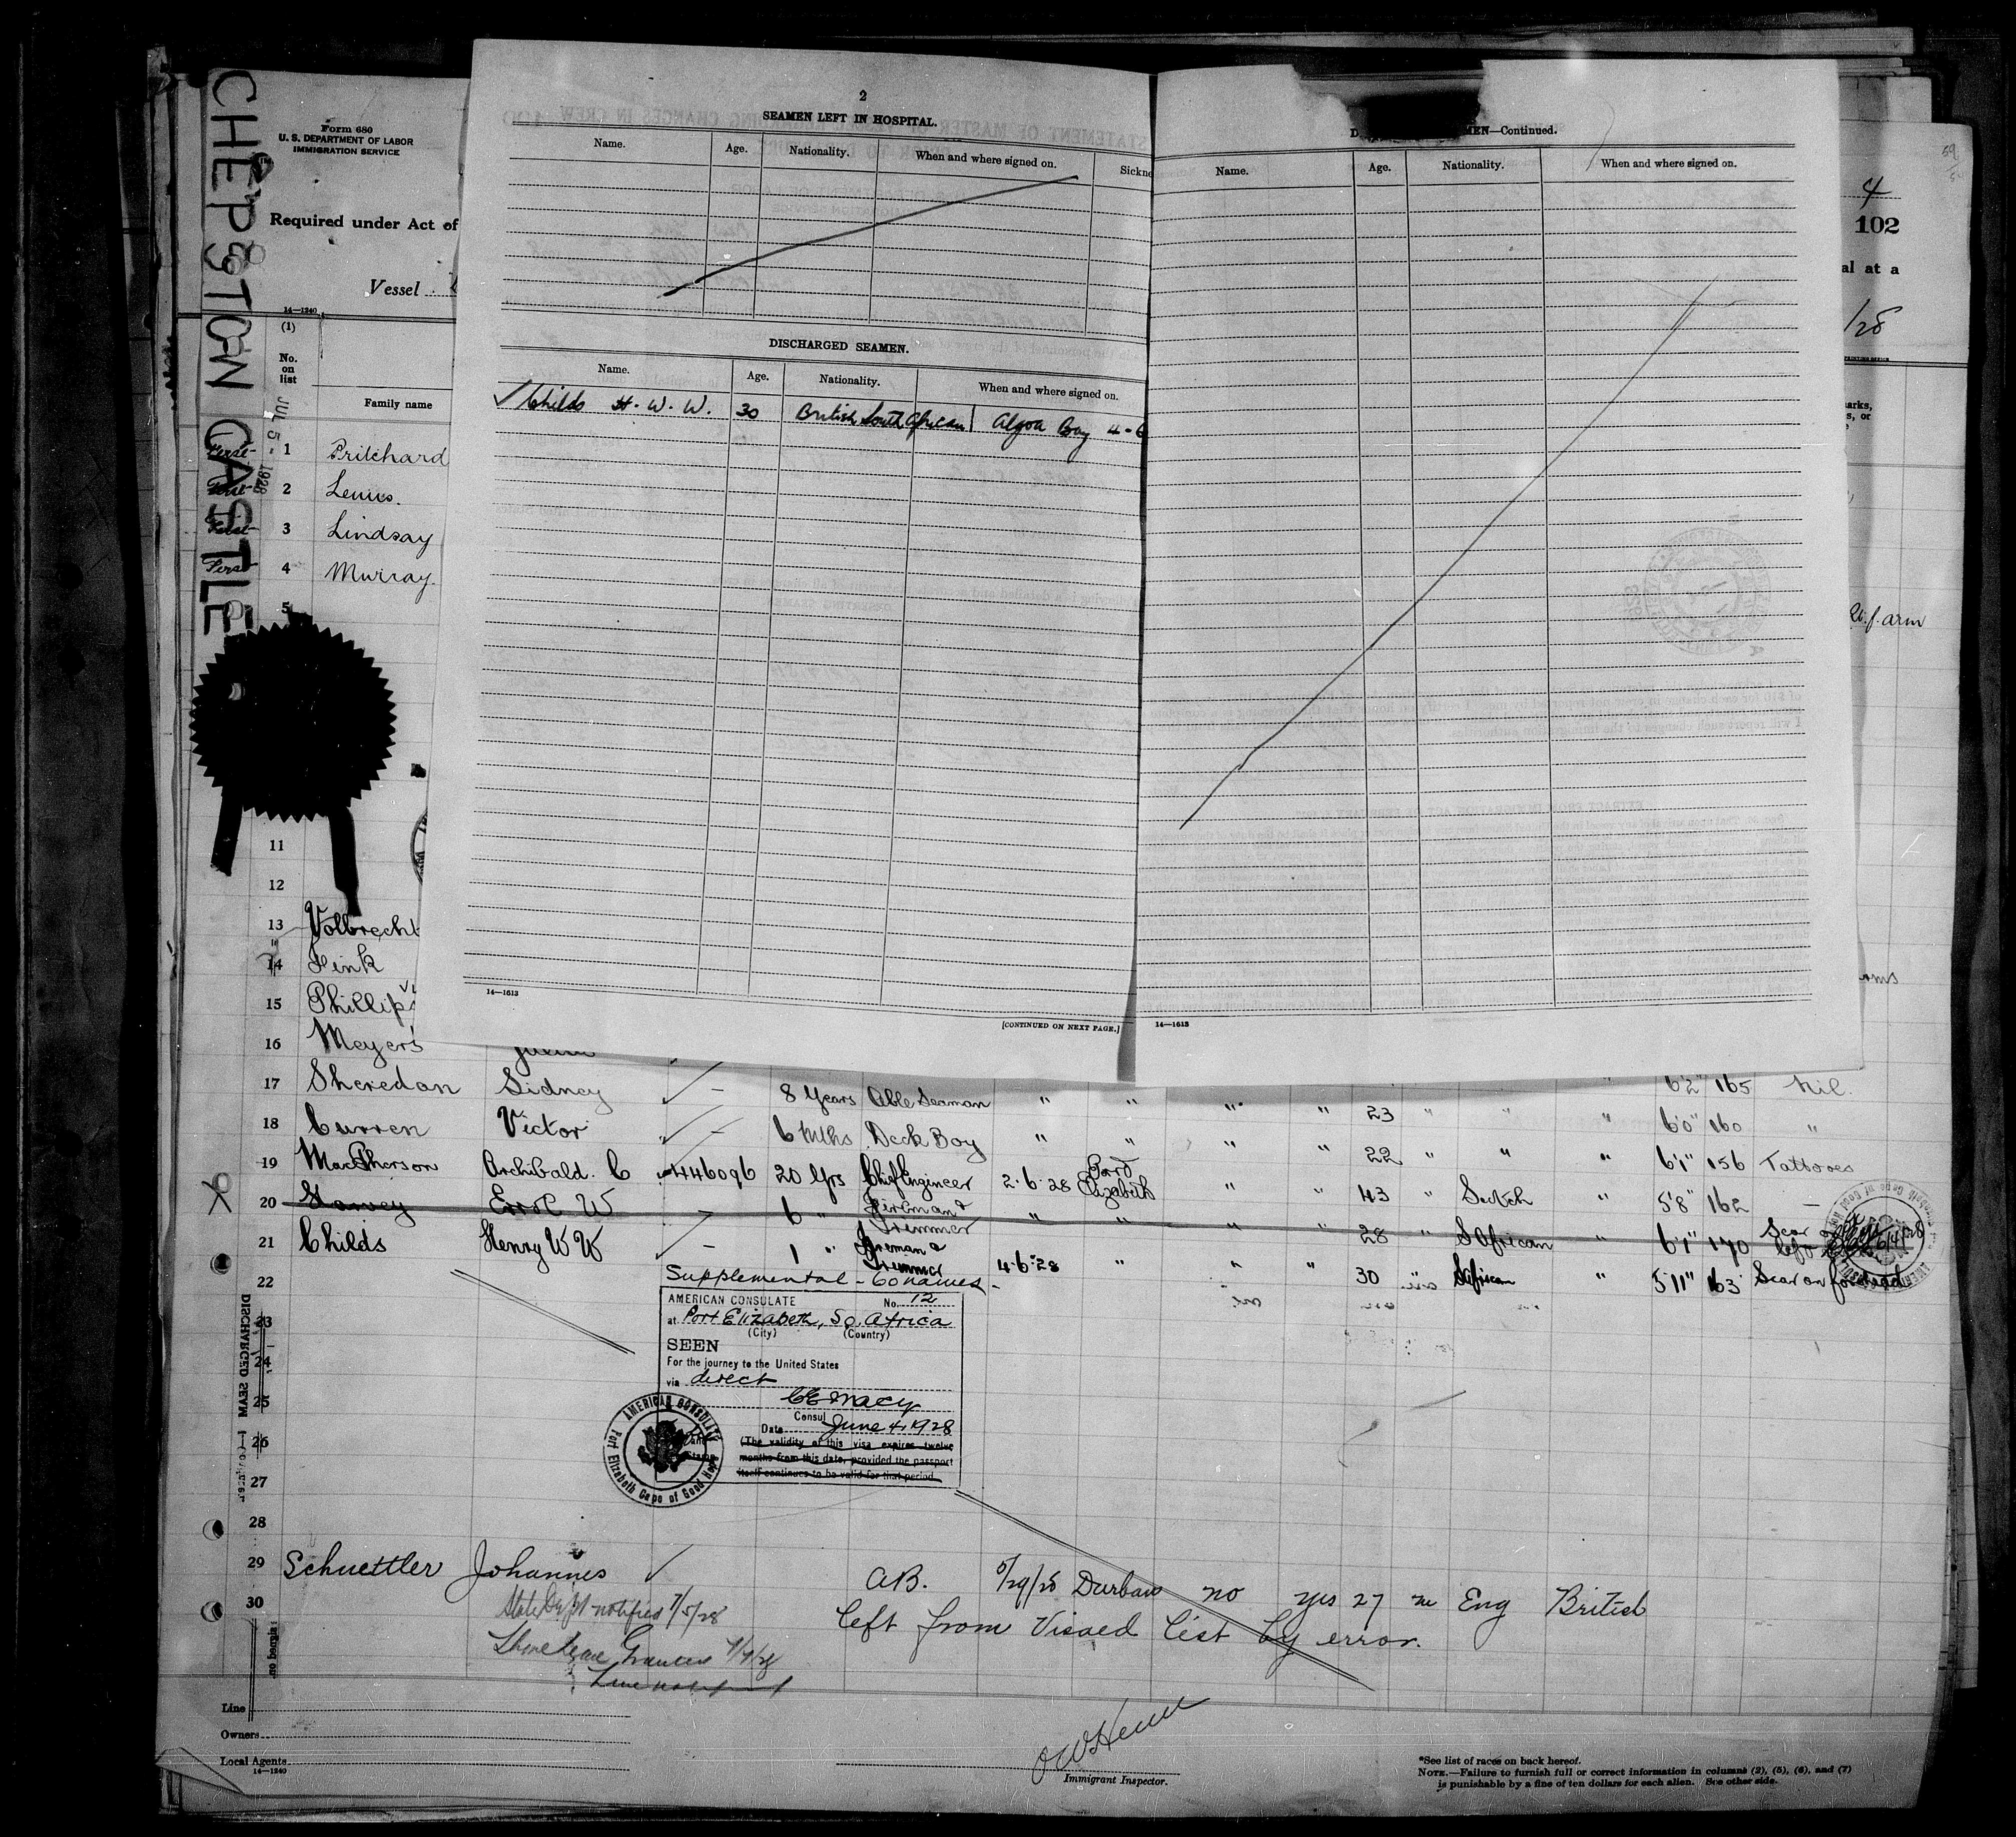 CHEPSTOW CASTLE
Form 680
U. S. DEPARTMENT OF LABOR
IMMIGRATION SERVICE
Required under Act of
Vessel
14—1240
(1)
No. on list
Family name
JUL 5 - 1928
1 Pritchard
2 Lewis.
3 Lindsay
4 Murray.
5
11
12
13 Volbrecht
14 Fink
15 Phillips
16 Meyers
2
SEAMEN LEFT IN HOSPITAL.
Name. Age. Nationality. When and where signed on. Sickne
DISCHARGED SEAMEN.
Name. Age. Nationality. When and where signed on.
Childs H. W. W. 30 British South African Algoa Bay 4-6
14—1613
[CONTINUED ON NEXT PAGE.]
D MEN—Continued.
Name. Age. Nationality. When and where signed on.
14—1613
4
102
al at a
/28
arks,
s, or
f. arm
arms
17 Sheredan Sidney — 8 Years Able Seaman " " " " 23 " " " 6'2" 165 Nil.
18 Curren Victor — 6 Mths Deck Boy " " " " 22 " " " 6'0" 160 "
19 MacPherson Archibald. C 446096 20 Yrs Chief Engineer 2.6.28 Port Elizabeth " " 43 " Scotch " 5'8" 162 —
20 Errol W — 6 " Fireman & Trimmer " " " " 28 " S African " 6'1" 170 Scar on left
21 Childs Henry W W — 1 " Fireman & Trimmer 4.6.28 " " " 30 " S African " 5'11" 163 Scar on forehead
22
Supplemental - 60 names -
AMERICAN CONSULATE No. 12
at Port Elizabeth, So. Africa
(City) (Country)
SEEN
For the journey to the United States
via direct
Consul
Date June 4, 1928
(The validity of this visa expires twelve
months from this date, provided the passport
itself continues to be valid for that period.
AMERICAN CONSULATE
Port Elizabeth Cape of Good Hope
DISCHARGED SEAM
23
24
25
26
27
28
29 Schuettler Johannes A.B. 5/29/28 Durban no yes 27 m Eng British
30 State Dept notified 7/5/28
left from Visaed list by error.
Line
Owners
Local Agents
14—1240
Immigrant Inspector.
*See list of races on back hereof.
NOTE.—Failure to furnish full or correct information in columns (2), (5), (6), and (7)
is punishable by a fine of ten dollars for each alien. See other side.